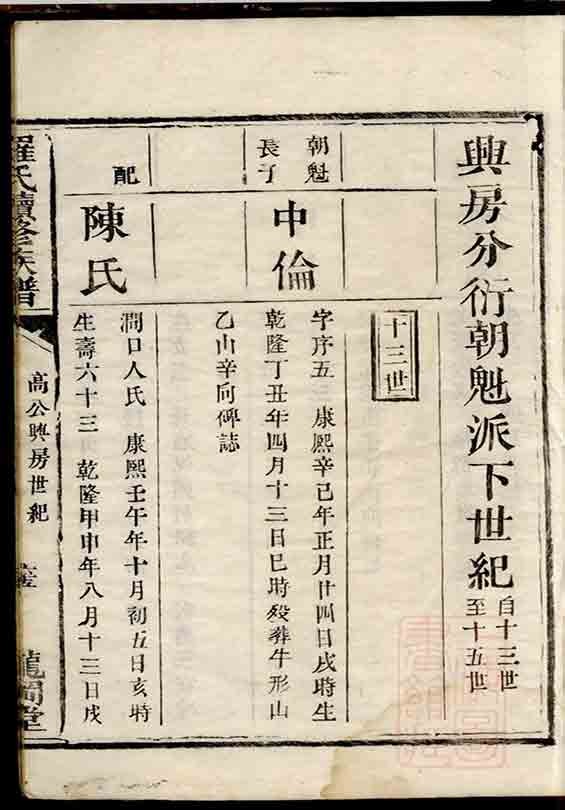 興房分衍朝魁派下世紀 自十三世至十五世
十三世
朝魁長子
中倫
字序五 康熙辛巳年正月廿四日戌時生
乾隆丁丑年四月十三日巳時歿葬牛形山
乙山辛向碑誌
配
陳氏
澗口人氏 康熙壬午年十月初五日亥時
生壽六十三 乾隆甲申年八月十三日戌
羅氏續修族譜
高公興房世紀
龍岡堂